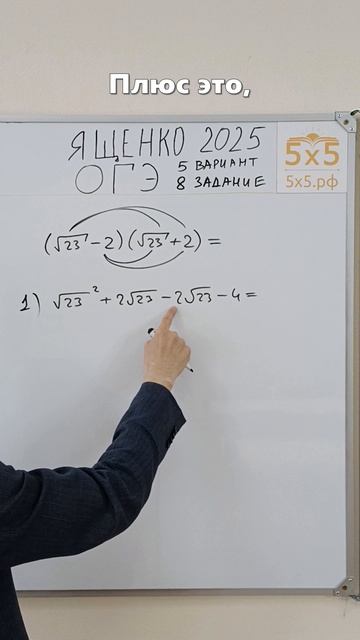 Плюс это,
ЯЩЕНКО 2025
ОГЭ
5 ВАРИАНТ
8 ЗАДАНИЕ
5x5
5x5.рф
(√23 - 2)(√23 + 2) =
1) √23² + 2√23 - 2√23 - 4 =